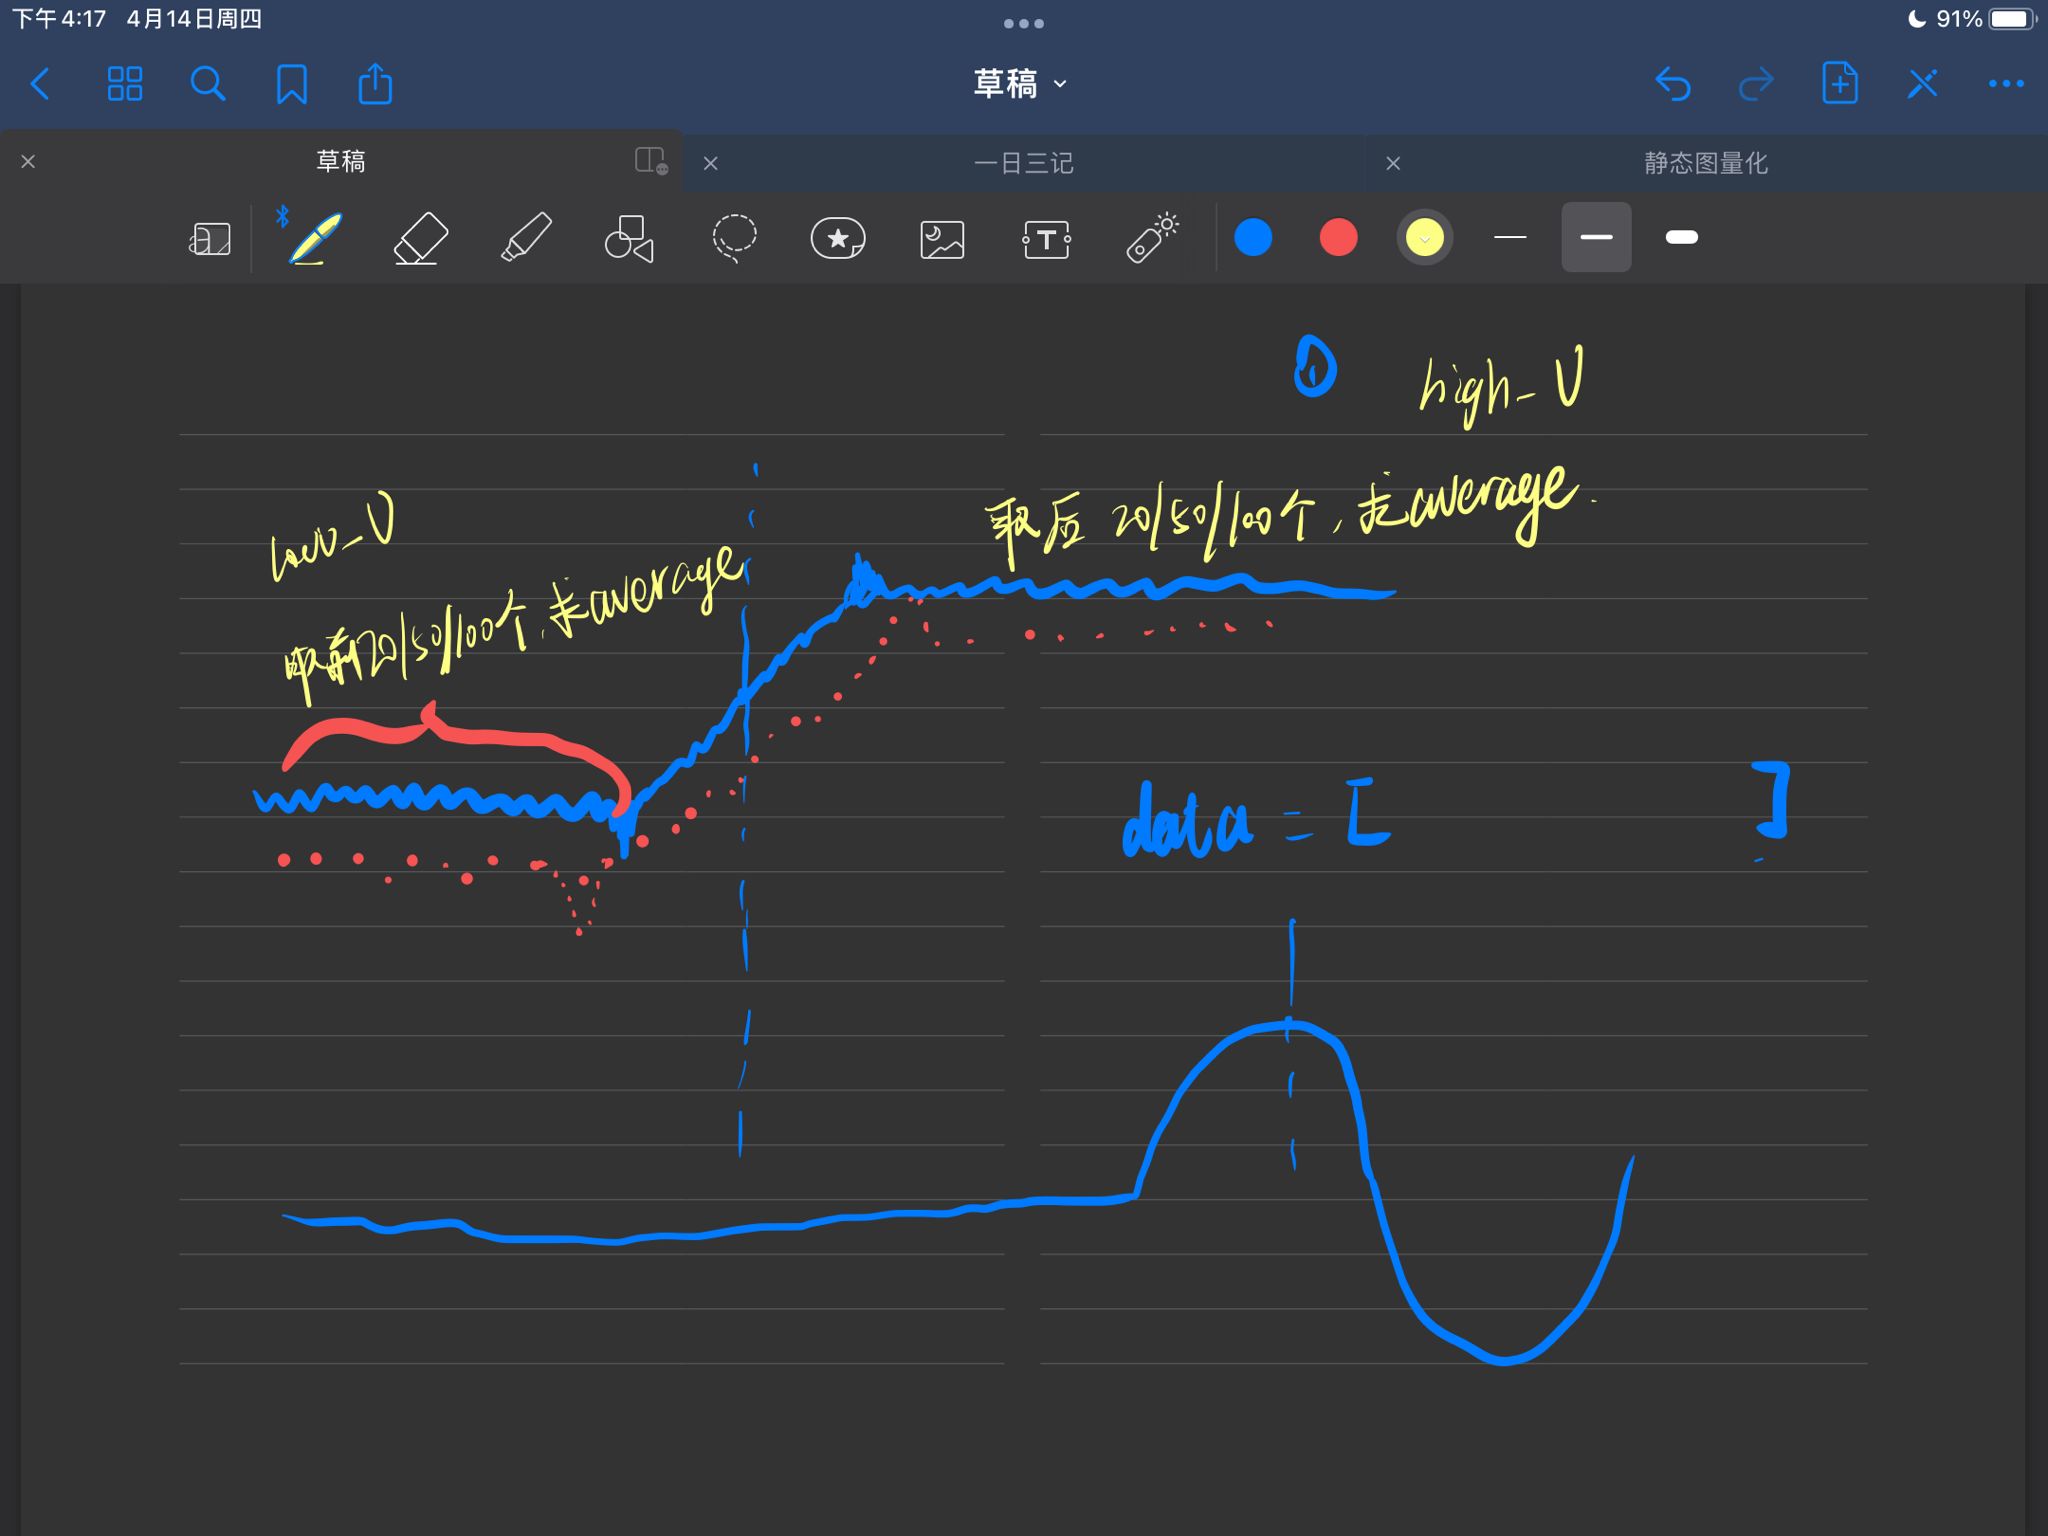 下午4:17 4月14日周四
91%
草稿
草稿
一日三记
静态图量化
T
① high_V
取后 20/50/100个, 求average.
low_V
取前20/50/100个, 求average
data = [ ]